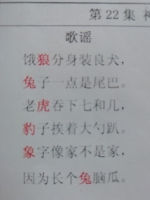 第22集
歌谣
饿狼分身装良犬，
兔子一点是尾巴。
老虎吞下七和几，
豹子挨着大勺趴。
象字像家不是家，
因为长个兔脑瓜。